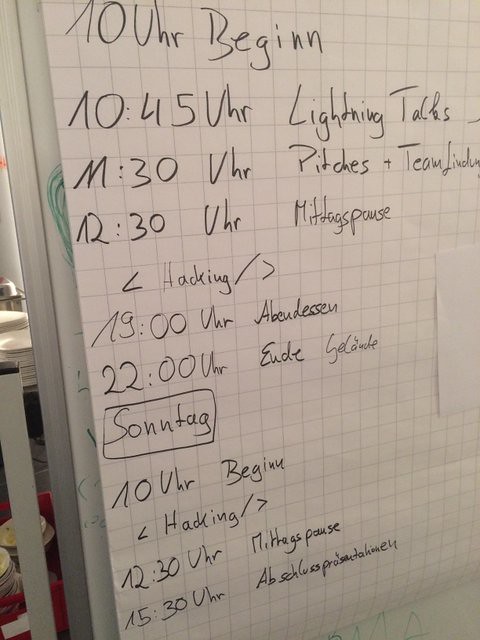 10 Uhr Beginn
10:45 Uhr Lightning Talks
11:30 Uhr Pitches + Teamfindung
12:30 Uhr Mittagspause
< Hacking />
19:00 Uhr Abendessen
22:00 Uhr Ende Gelände
Sonntag
10 Uhr Beginn
< Hacking />
12:30 Uhr Mittagspause
15:30 Uhr Abschlusspräsentationen